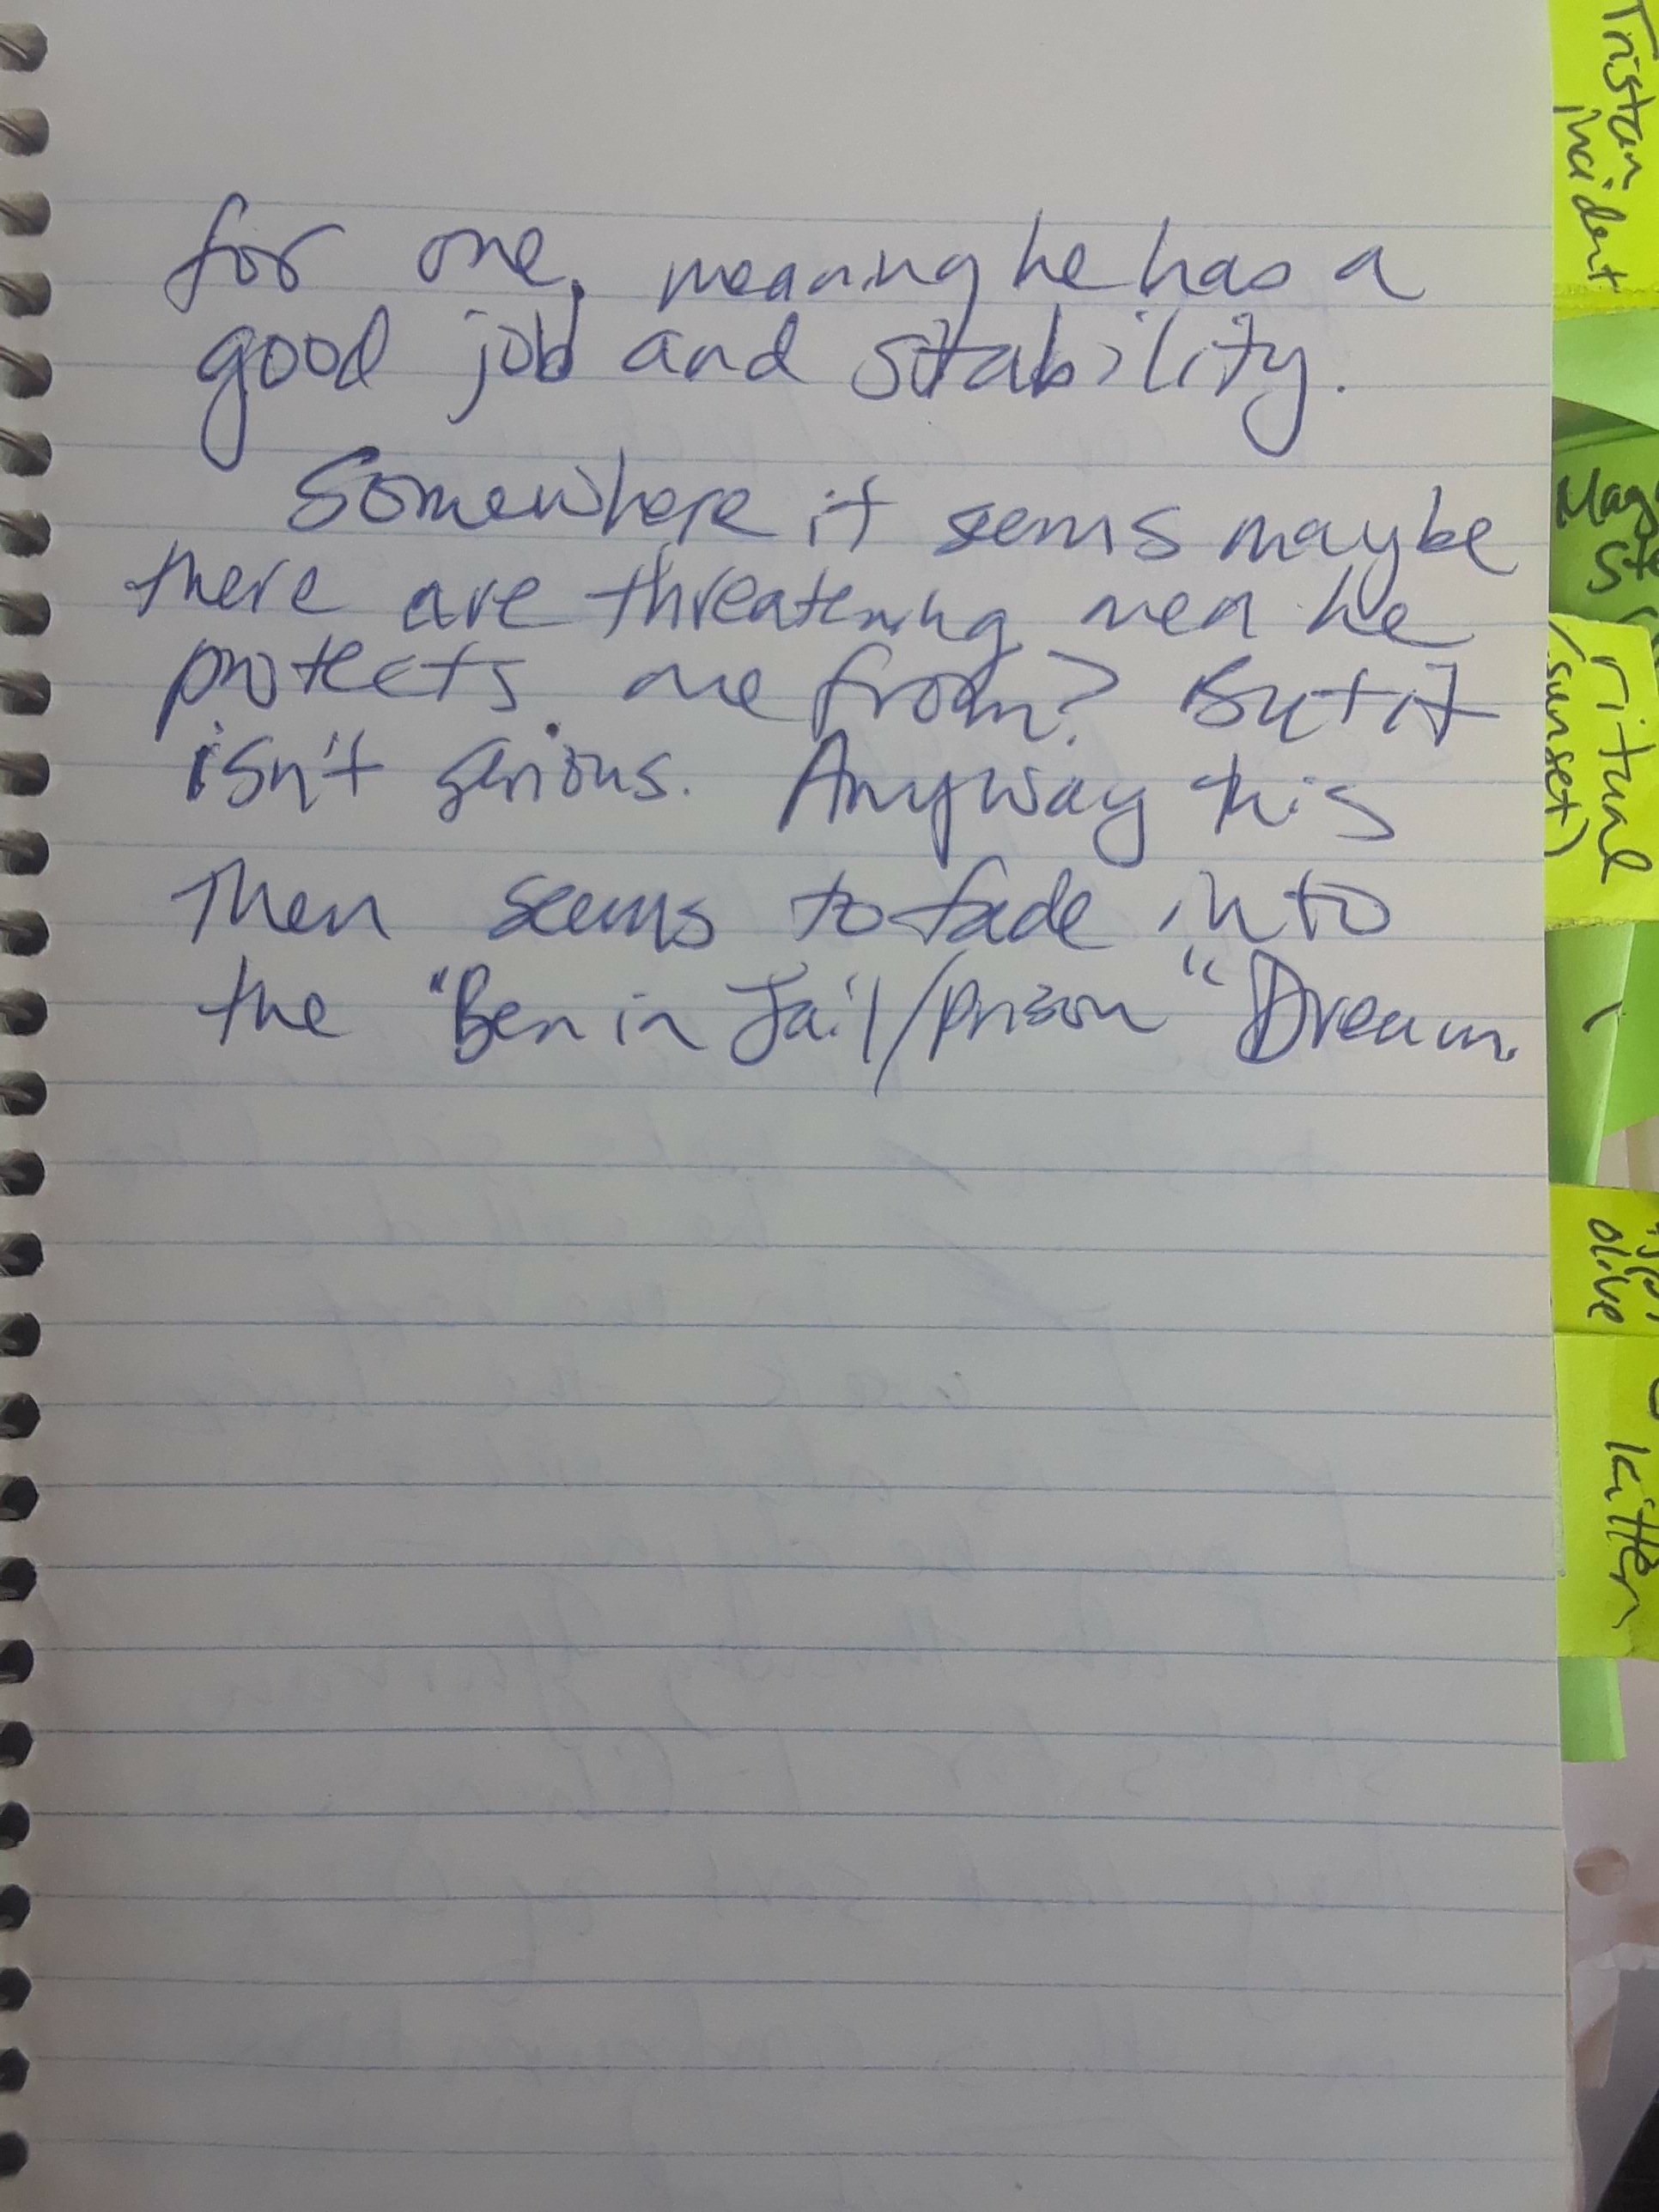 for one, meaning he has a
good job and stability.
Somewhere it seems maybe
there are threatening men he
protects me from? But it
isn't serious. Anyway this
Then seems to fade into
the "Ben in Jail/prison" Dream.
Tristan
incident
ritual
(sunset)
olive
kitten